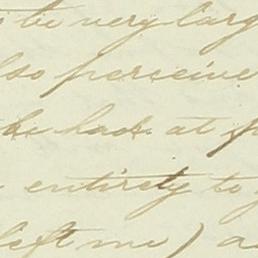 to be very larg
lso perceive
he had at p
entirety to
left me) a